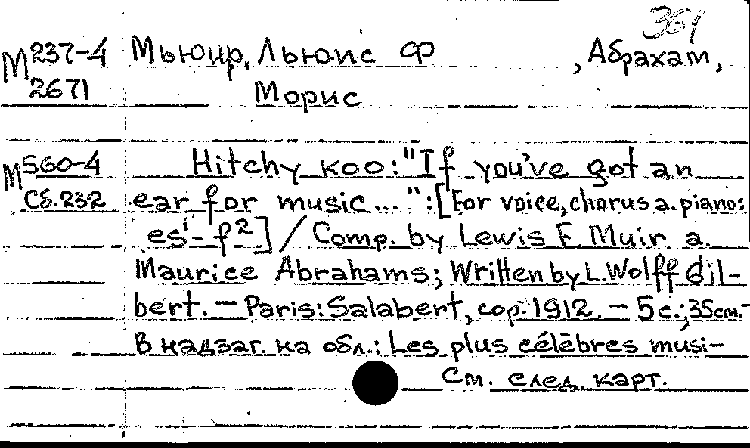 361
M 237-4 Мьюир, Льюис Ф , Абрахам,
2671 Морис
M 560-4 Hitchy Koo: "If you've got an
Сб.232 ear for music...": [For voice, chorus a. piano:
es¹-f²] / Comp. by Lewis F. Muir a.
Maurice Abrahams; Written by L. Wolff Gil-
bert. — Paris: Salabert, cop. 1912. — 5 с.; 35 см.-
В надзаг. на обл.: Les plus célèbres musi-
См. след. карт.